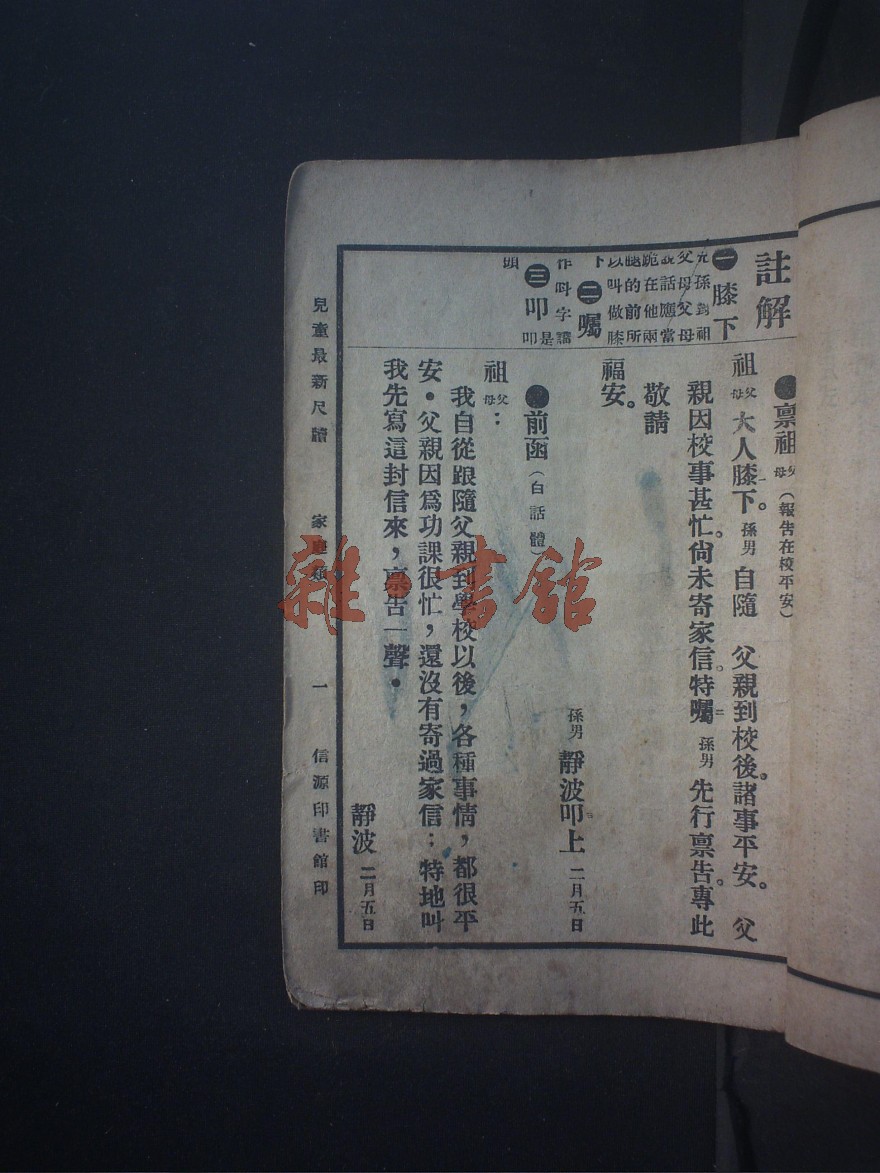 註解
一膝下
凡孫對祖
父母父母
說話應當
跪在他兩
腿的前所
以叫做膝
下二囑
作叫字講
三叩是
叩
頭
稟祖父母（報告在校平安）
祖父母大人膝下。孫男自隨　父親到校後。諸事平安。　父
親因校事甚忙。尙未寄家信。特囑孫男先行禀告。專此
敬請
福安。
孫男靜波叩上　二月五日
前函（白話體）
祖父母：
我自從跟隨父親到學校以後，各種事情，都很平
安．父親因爲功課很忙，還沒有寄過家信：特地叫
我先寫這封信來，禀告一聲．
靜波　二月五日
兒童最新尺牘　家庭類　一　信源印書館印
雜·書館